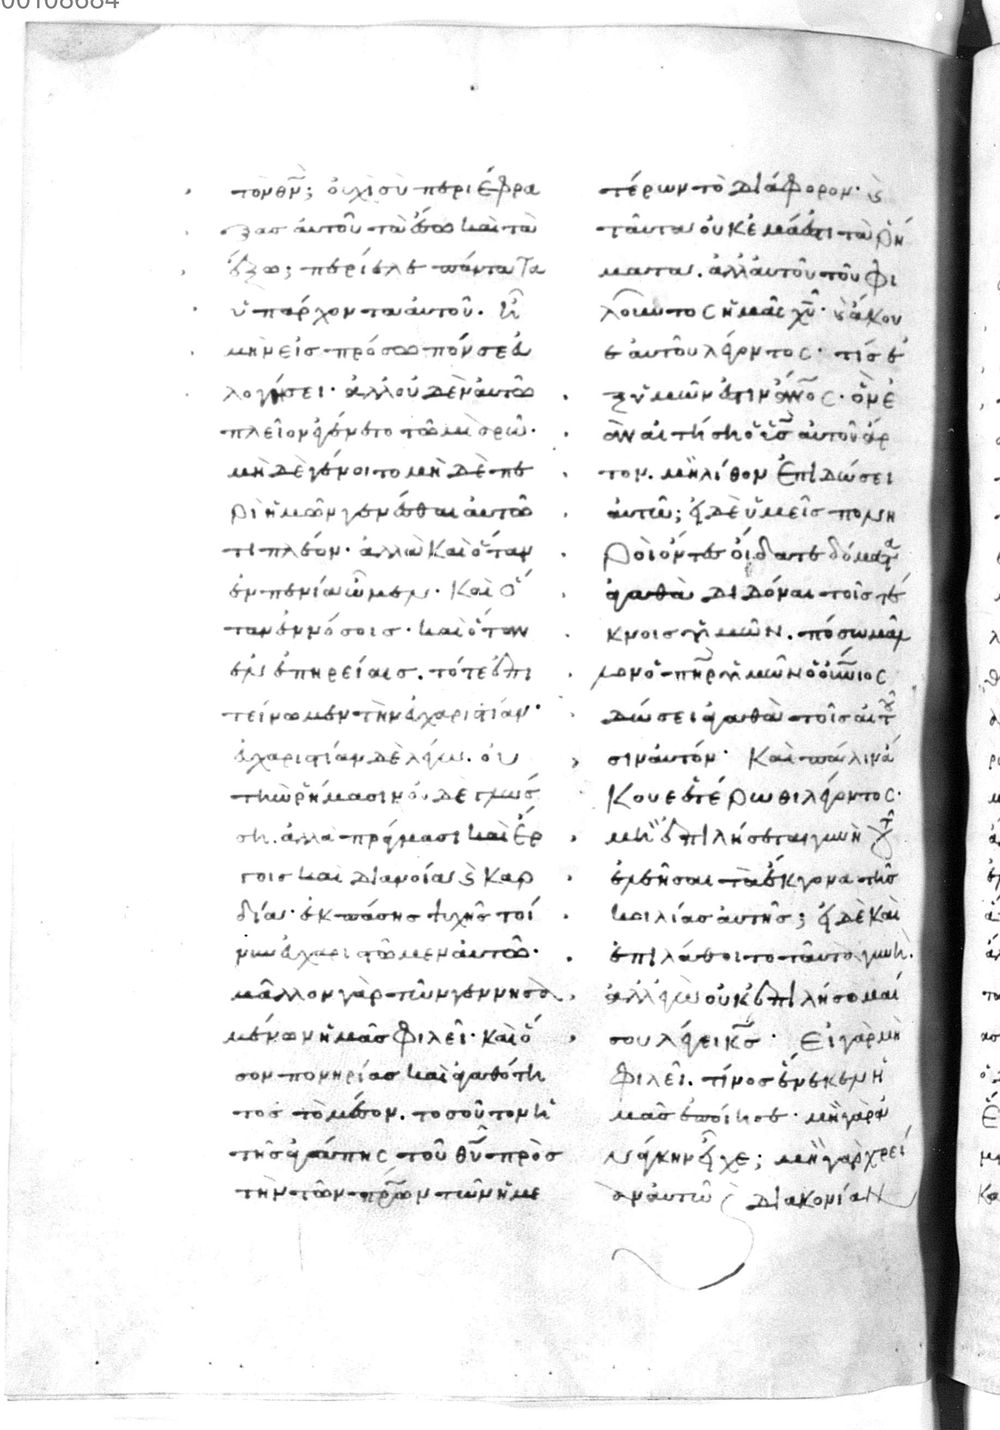 00108684
τὸν θν̄; οὐχὶ σὺ περιέφρα
ξας αὐτοῦ τὰ ἔσω καὶ τὰ
ἔξω; περίελε πάντα τὰ
ὑπάρχοντα αὐτοῦ. εἰ
μὴν εἰς πρόσωπόν σε εὐ
λογήσει· ἀλλ' οὐδὲν αὐτῶ
πλεῖον ἐγένετο τῶ μιαρῶ·
μὴ δὲ γένοιτο μὴ δὲ πε
ρὶ ἡμῶν γενέσθαι αὐτῶ
τι πλέον· ἀλλὰ καὶ ὅταν
ἐν πενία ὦμεν· καὶ ὅ
ταν ἐν νόσοις· καὶ ὅταν
ἐν ἐπηρείαις. τότε ἐπι
τείνωμεν τὴν εὐχαριστίαν·
εὐχαριστίαν δὲ λέγω. οὐ
τὴν ῥήμασιν οὐδὲ γλώσ
ση. ἀλλὰ πράγμασι καὶ ἔρ
γοις καὶ διανοίας καρ
δία· ἐκ πάσης ψυχῆς τοί
νυν εὐχαριστῶμεν αὐτῶ·
μᾶλλον γὰρ τῶν γεννησα
μένων ἡμᾶς φιλεῖ· καὶ ὅ
σον πονηρίας καὶ ἀγαθότη
τος τὸ μέσον. τοσοῦτον ἡ
τῆς ἀγάπης τοῦ θῡ πρὸς
τὴν τῶν πρ̄ων τῶν ἡμε
τέρων τὸ διάφορον·
ταῦτα οὐκ ἐμά ἐστι τὰ ῥή
ματα. ἀλλ' αὐτοῦ τοῦ φι
λοῦντος ἡμᾶς χῡ· ἄκου
ε αὐτοῦ λέγοντος· τίς ἐ
ξ ὑμῶν ἐστιν ἄνος· ὃν ἐ
ὰν αἰτήση ὁ υἱὸς αὐτοῦ ἄρ
τον. μὴ λίθον ἐπιδώσει
αὐτῶ; εἰ δὲ ὑμεῖς πονη
ροὶ ὄντες οἴδατε δόματα
ἀγαθὰ διδόναι τοῖς τέ
κνοις ὑμῶν. πόσω μᾶλ
λον ὁ πηρ ὑμῶν ὁ οὐνιος
δώσει ἀγαθὰ τοῖς αἰτοῦ
σιν αὐτόν· Καὶ πάλιν ἄ
κουε ἑτέρωθι λέγοντος·
μὴ ἐπιλήσεται γυνὴ τοῦ
ἐλεῆσαι τὰ ἔκγονα τῆς
κοιλίας αὐτῆς; εἰ δὲ καὶ
ἐπιλάθοιτο ταῦτα γυνή.
ἀλλ' ἐγὼ οὐκ ἐπιλήσομαί
σου λέγει κς̄· Εἰ γὰρ μὴ
φιλεῖ. τίνος ἕνεκεν ἡ
μᾶς ἐποίησε· μὴ γὰρ ἀ
νάγκην εἶχε; μὴ γὰρ χρεί
αν αὐτῶ διακονίαν